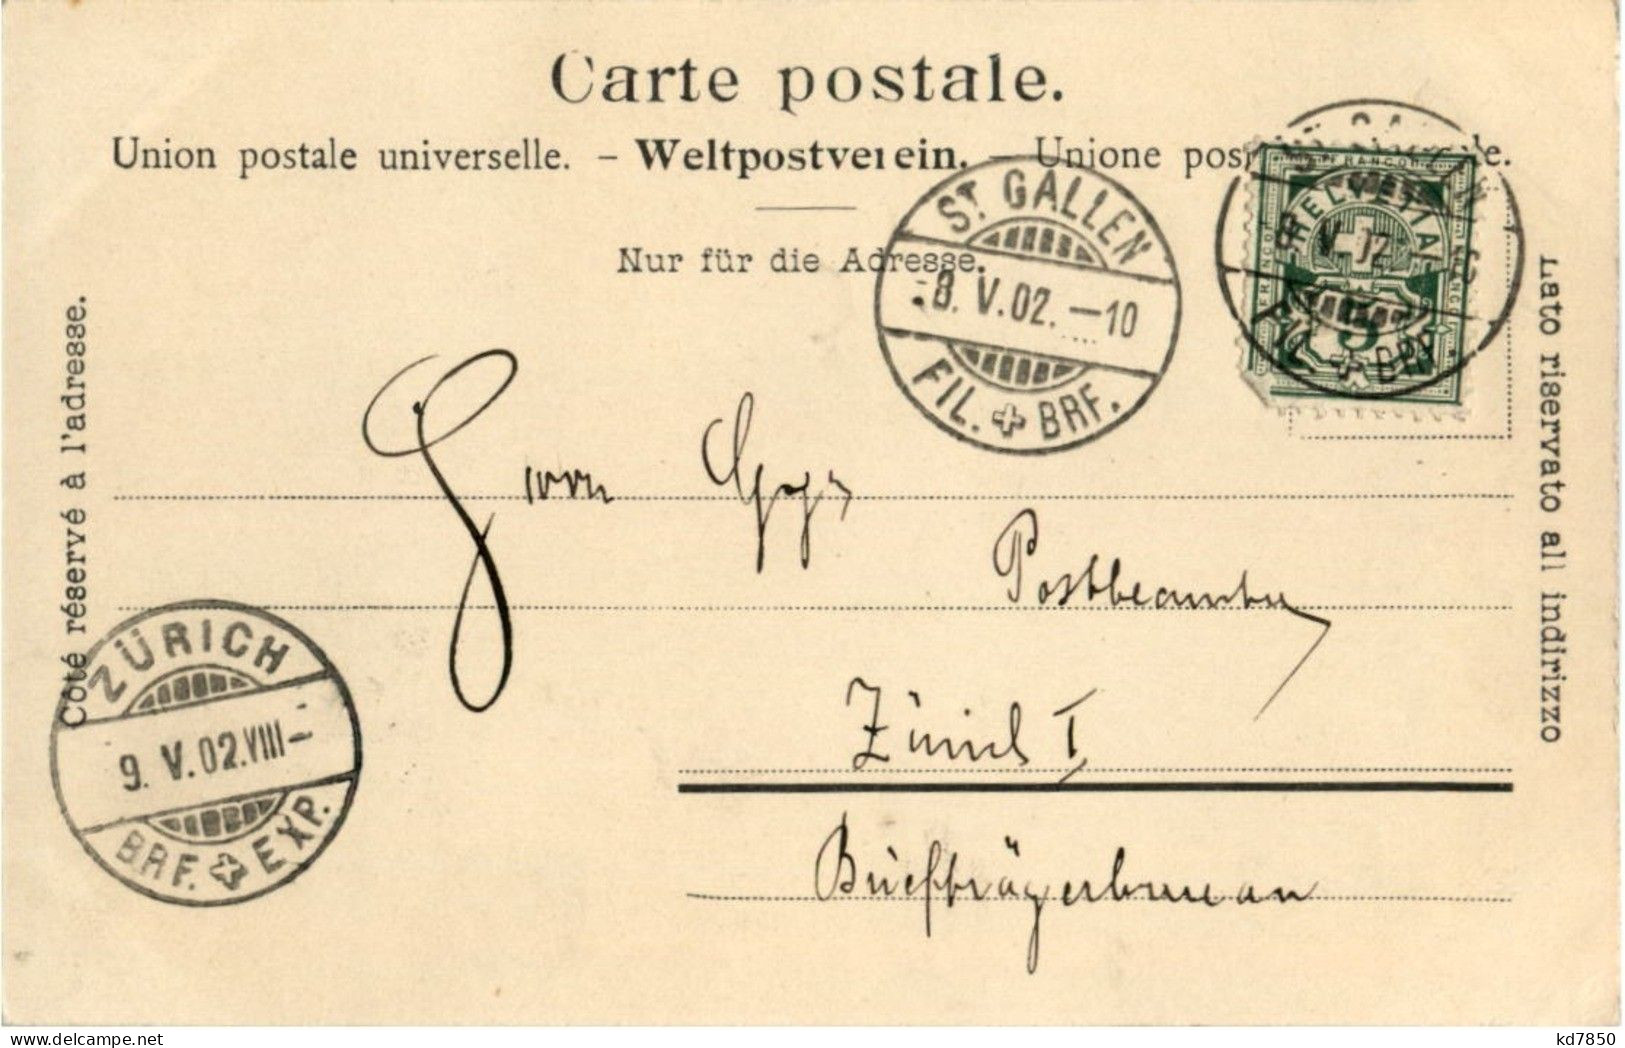 Carte postale.
Union postale universelle. – Weltpostverein. – Unione postale.
Nur für die Adresse.
Côté réservé à l'adresse.
Lato riservato all indirizzo
ST. GALLEN
8. V. 02. –10
FIL. + BRF.
FRANCO
HELVETIA
V. 02
5
FIL. + BRF.
Herrn
Postbeamter
Zürich I
Briefträgerbureau
ZÜRICH
9. V. 02. VIII–
BRF. + EXP.
kd7850